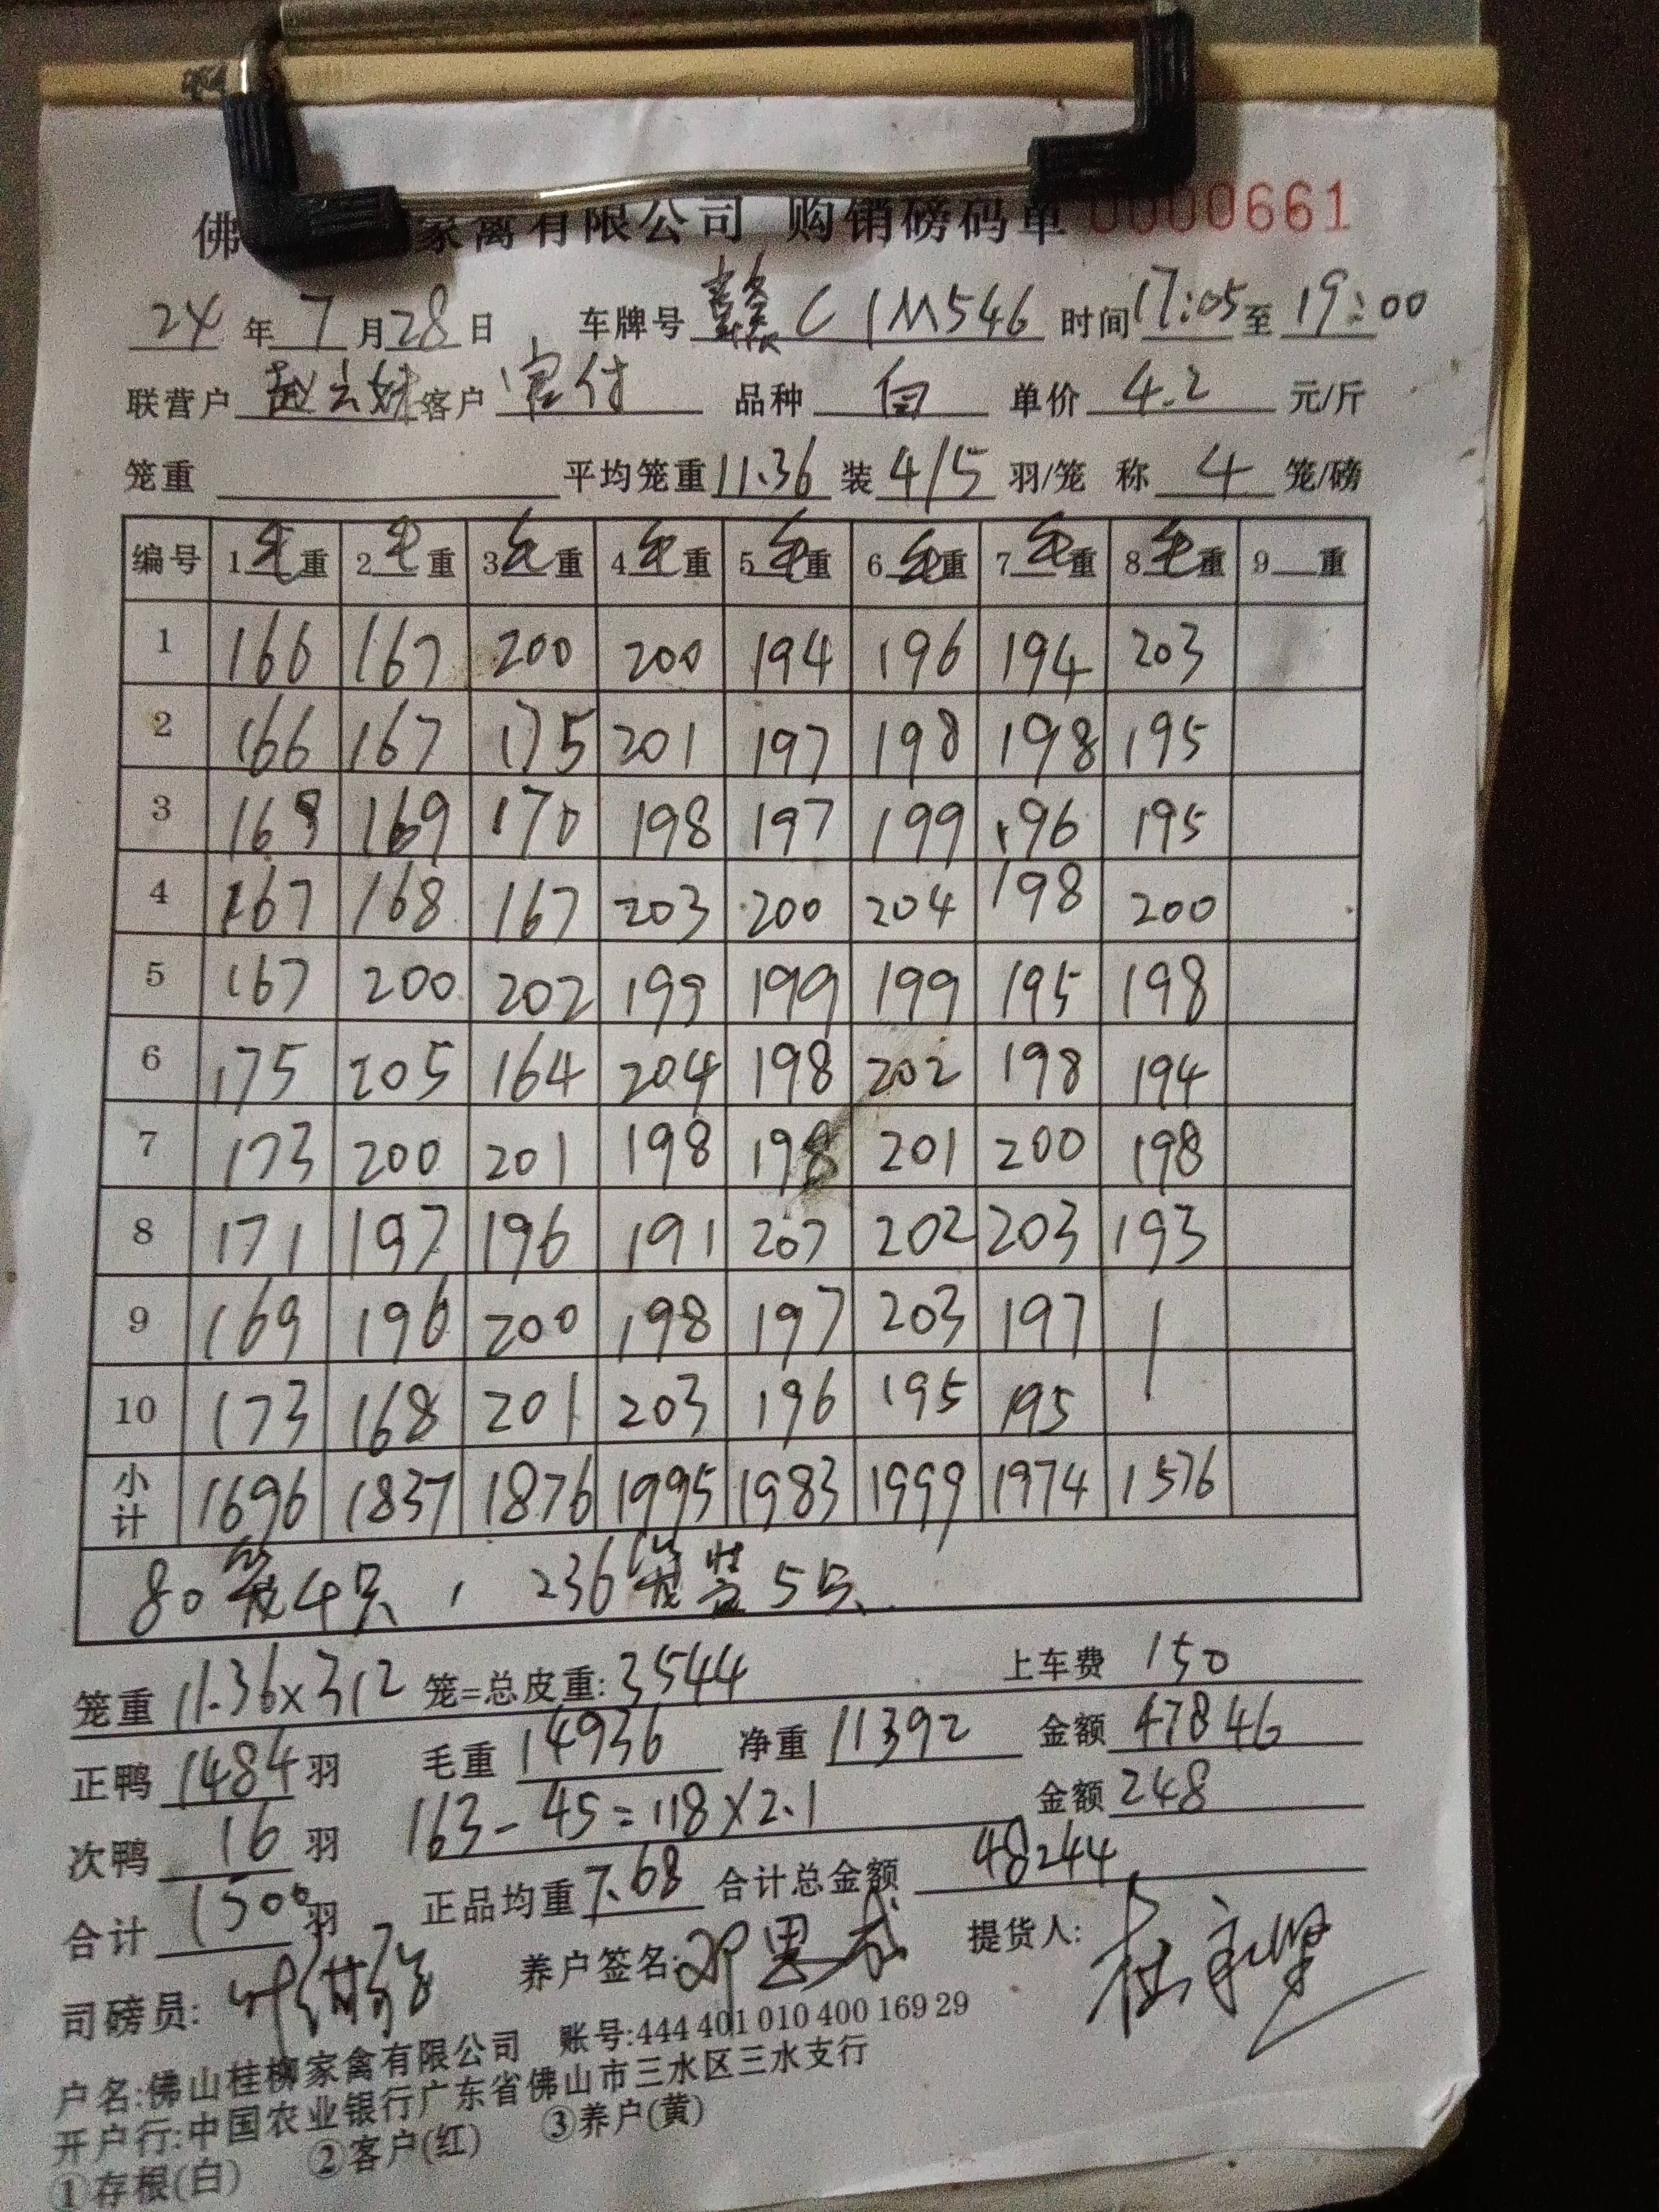 佛 家禽有限公司 购销磅码单 0000661
24 年 7 月 28 日 车牌号 赣C 1M546 时间 17:05 至 19:00
联营户 赵云妹 客户 官付 品种 白 单价 4.2 元/斤
笼重 平均笼重 11.36 装 4/5 羽/笼 称 4 笼/磅
编号 1毛重 2毛重 3毛重 4毛重 5毛重 6毛重 7毛重 8毛重 9 重
1 166 167 200 200 194 196 194 203
2 166 167 175 201 197 198 198 195
3 169 169 170 198 197 199 196 195
4 167 168 167 203 200 204 198 200
5 167 200 202 199 199 199 195 198
6 175 205 164 204 198 202 198 194
7 173 200 201 198 198 201 200 198
8 171 197 196 191 207 202 203 193
9 169 196 200 198 197 203 197
10 173 168 201 203 196 195 195
小计 1696 1837 1876 1995 1983 1999 1974 1576
80笼4只, 236笼装5只
笼重 11.36×312 笼=总皮重: 3544 上车费 150
正鸭 1484 羽 毛重 14936 净重 11392 金额 47846
次鸭 16 羽 163-45=118×2.1 金额 248
合计 1500 羽 正品均重 7.68 合计总金额 48244
司磅员: 养户签名: 提货人:
户名:佛山桂柳家禽有限公司 账号:444 401 010 400 169 29
开户行:中国农业银行广东省佛山市三水区三水支行
①存根(白) ②客户(红) ③养户(黄)